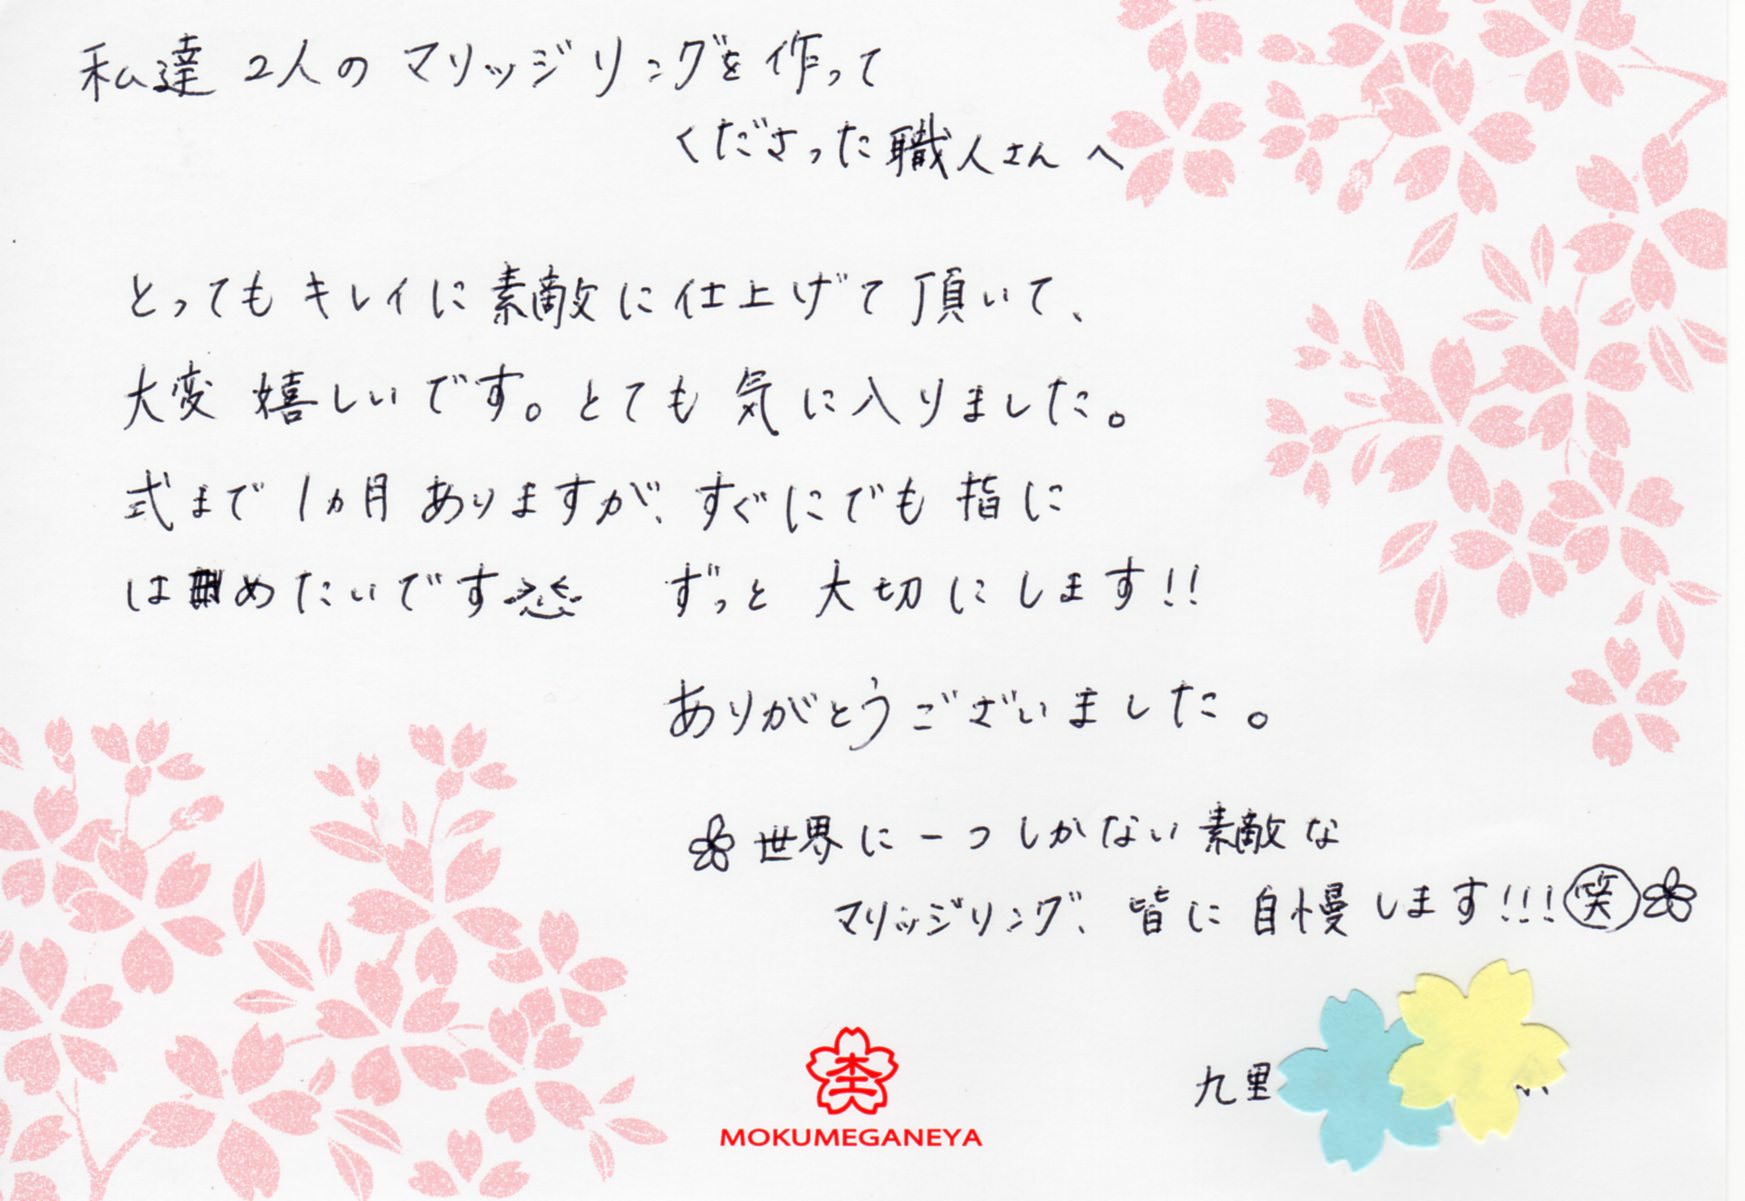 私達 2人の マリッジリングを 作って
くださった職人さん へ
とっても キレイに 素敵に 仕上げて 頂いて、
大変 嬉しいです。とても 気に入りました。
式まで 1ヵ月 ありますが、すぐにでも 指に
はめたいです ずっと 大切にします!!
ありがとうございました。
世界に一つしかない素敵な
マリッジリング、皆に 自慢します!!!笑
九里
MOKUMEGANEYA